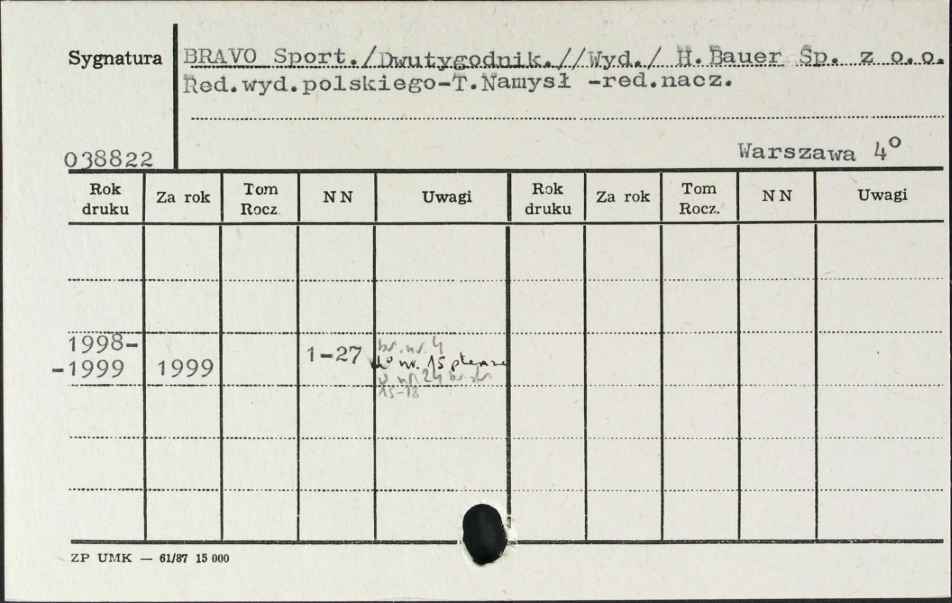 Sygnatura BRAVO Sport./Dwutygodnik.//Wyd./ H.Bauer Sp. z o.o.
Red.wyd.polskiego-T.Namysł -red.nacz.
038822 Warszawa 4°
Rok druku Za rok Tom Rocz. N N Uwagi Rok druku Za rok Tom Rocz. N N Uwagi
1998-
-1999 1999 1-27
br. nr. 4
nr. 15
w nr 24
15-18
ZP UMK — 61/87 15 000